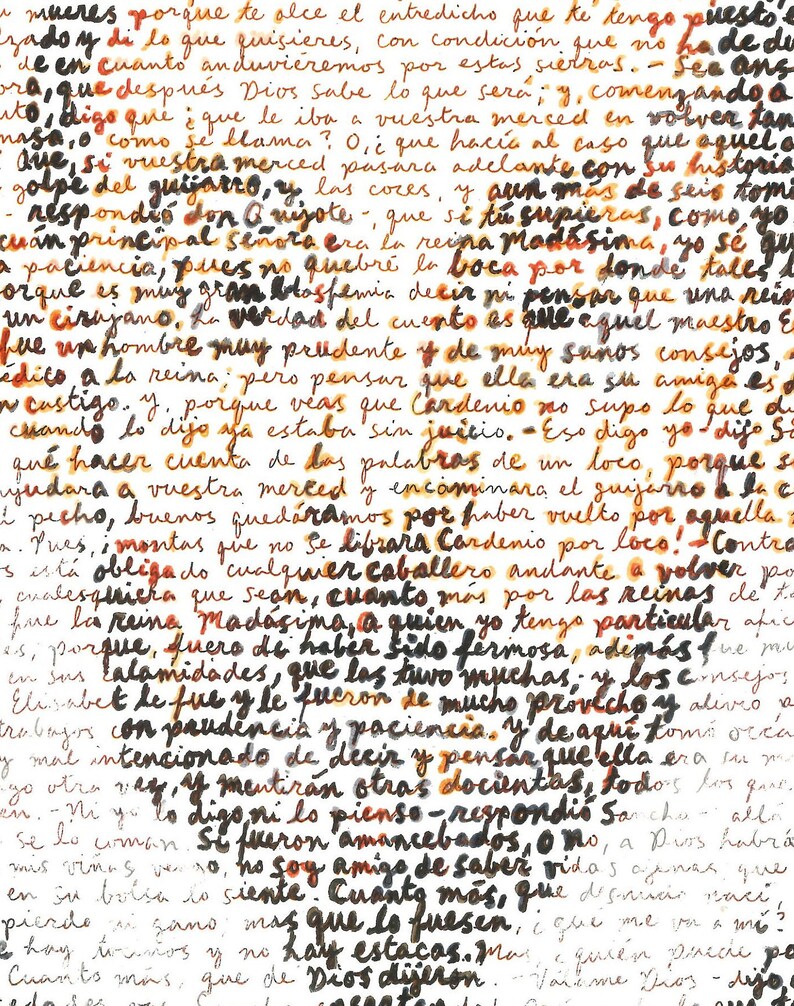 mueres porque te alce el entredicho que te tengo puesto e
lzado y di lo que quisieres, con condición que no ha de du
de en cuanto anduviéremos por estas sierras. - Sea ans
ora, que después Dios sabe lo que será; y, comenzando a
uto, digo que ¿que le iba a vuestra merced en volver tan
masa, o como se llama? O, ¿que hacía al caso que aquel a
Que, si vuestra merced pasara adelante con su historia
golpe del guijarro, y las coces, y aun más de seis torni
- respondió don Quijote -, que si tú supieras, como yo
cuán principal señora era la reina Madásima, yo sé qu
a paciencia, pues no quebré la boca por donde tales b
orque es muy gran blasfemia decir ni pensar que una rein
un cirujano. La verdad del cuento es que aquel maestro E
fue un hombre muy prudente y de muy sanos consejos,
édico a la reina; pero pensar que ella era su amiga es d
n castigo. Y, porque veas que Cardenio no supo lo que di
cuando lo dijo ya estaba sin juicio. - Eso digo yo - dijo Sa
qué hacer cuenta de las palabras de un loco, porque si
yudara a vuestra merced y encaminara el guijarro a la c
l pecho, buenos quedáramos por haber vuelto por aquella
n. Pues, ¡montas que no se librara Cardenio por loco! - Contra
s está obligado cualquier caballero andante a volver po
cualesquiera que sean, cuanto más por las reinas de ta
fue la reina Madásima, a quien yo tengo particular afic
es; porque, fuera de haber sido fermosa, además fue mu
en sus calamidades, que las tuvo muchas; y los consejos
Elisabet le fue y le fueron de mucho provecho y alivio p
trabajos con prudencia y paciencia. Y de aquí tomó ocas
y mal intencionado de decir y pensar que ella era su m
go otra vez, y mentirán otras docientas, todos los que
en. - Ni yo lo digo ni lo pienso - respondió Sancho - allá
se lo coman. Si fueron amancebados, o no, a Dios habrá
mis viñas vengo, no soy amigo de saber vidas ajenas que
en su bolsa lo siente. Cuanto más, que desnudo nací,
pierdo ni gano; mas que lo fuesen, ¿qué me va a mí?
e hay tocinos y no hay estacas. Mas, ¿quién puede po
Cuanto más, que de Dios dijeron. - Válame Dios - dijo